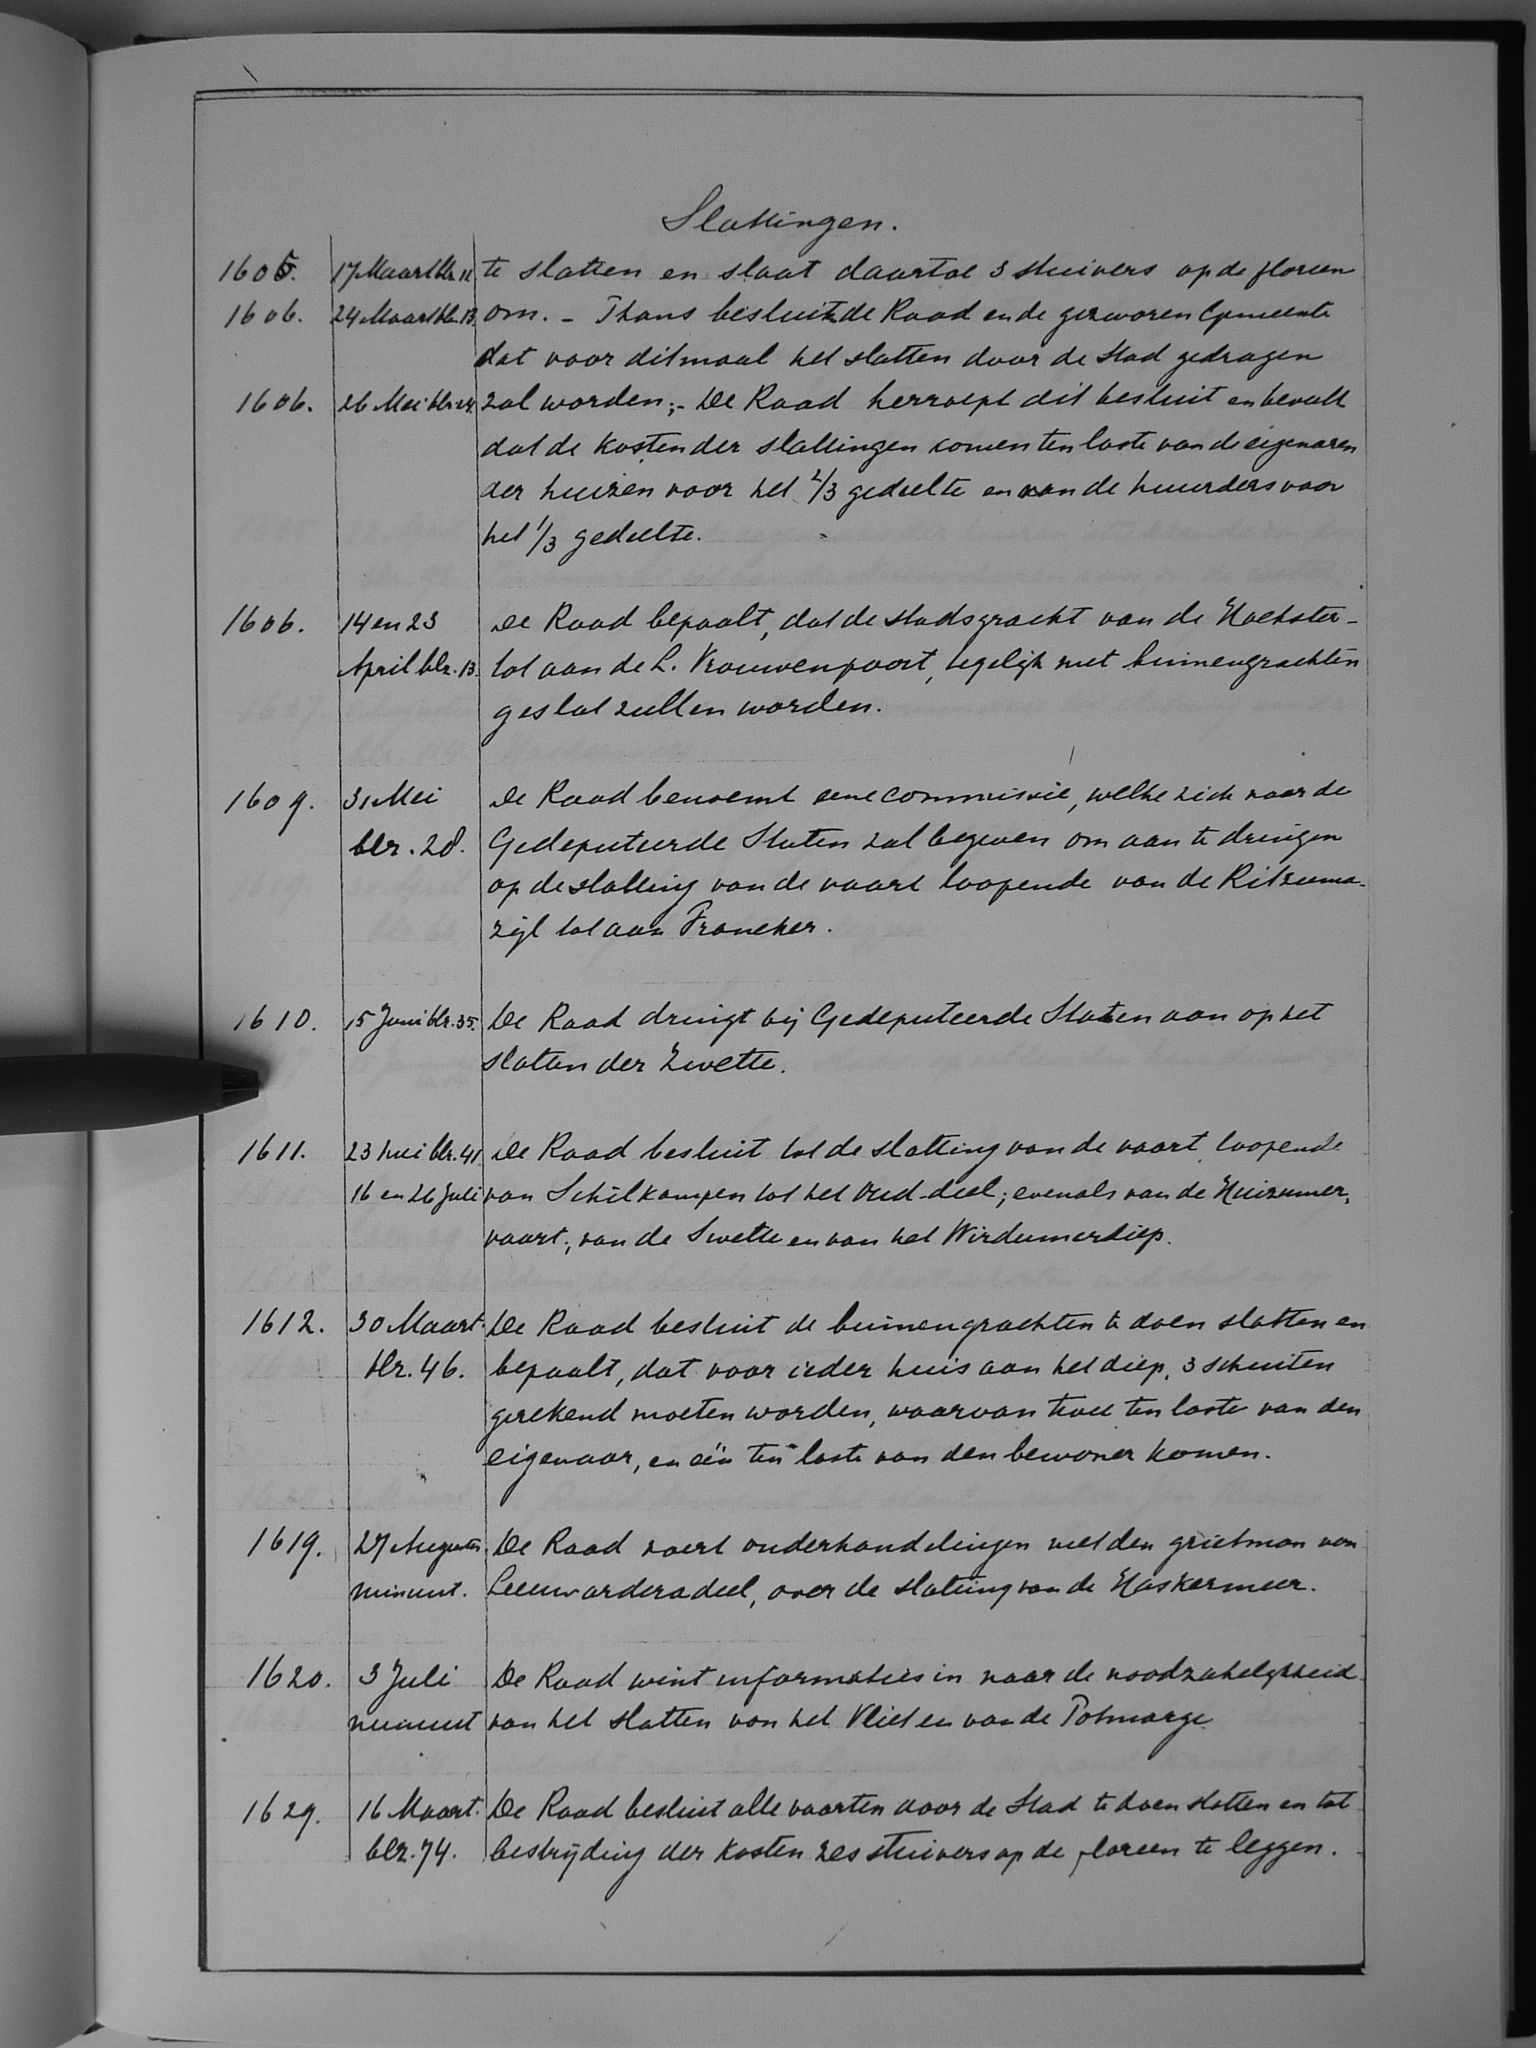 Slattingen.
1605. 17 Maart blr. 11 te slatten en slaat daartoe 3 stuivers op de floreen
1606. 24 Maart blr. 13 om. - Thans besluit de Raad en de gezworen Gemeente
dat voor ditmaal het slatten door de Stad gedragen
1606. 26 Mei blr. zal worden;- De Raad herroept dit besluit en bevalt
dat de kosten der slattingen komen ten laste van de eigenaren
der huizen voor het 2/3 gedeelte en van de huurders voor
het 1/3 gedeelte.
1606. 14 en 23 De Raad bepaalt, dat de stadsgracht van de Hoekster-
April blz. 13. tot aan de L. Vrouwenpoort, tegelijk met binnengrachten
geslat zullen worden.
1609. 31 Mei De Raad benoemt eene commissie, welke zich naar de
blz. 28. Gedeputeerde Staten zal begeven om aan te dringen
op de slatting van de vaart loopende van de Ritzuma-
zijl tot aan Franeker.
1610. 15 Juni blz. 35. De Raad dringt bij Gedeputeerde Staten aan op het
slatten der Zwette.
1611. 23 blz. 41. De Raad besluit tot de slatting van de vaart loopende
16 en 26 Juli van Schilkampen tot het Oud-deel; evenals van de Huizumer-
vaart, van de Swette en van het Wirdumerdiep.
1612. 30 Maart. De Raad besluit de binnengrachten te doen slatten en
blz. 46. bepaalt, dat voor ieder huis aan het diep, 3 schuiten
gerekend moeten worden, waarvan twee ten laste van den
eigenaar, en één ten laste van den bewoner komen.
1619. 27 Augustus. De Raad voert onderhandelingen met den grietman van
minuut. Leeuwarderadeel, over de slatting van de Haskermeer.
1620. 3 Juli De Raad wint informaties in naar de noodzakelijkheid
minuut van het slatten van het Vliet en van de Potmarge
1629. 16 Maart. De Raad besluit alle vaarten door de Stad te doen slatten en tot
blz. 74. bestrijding der kosten zes stuivers op de floreen te leggen.